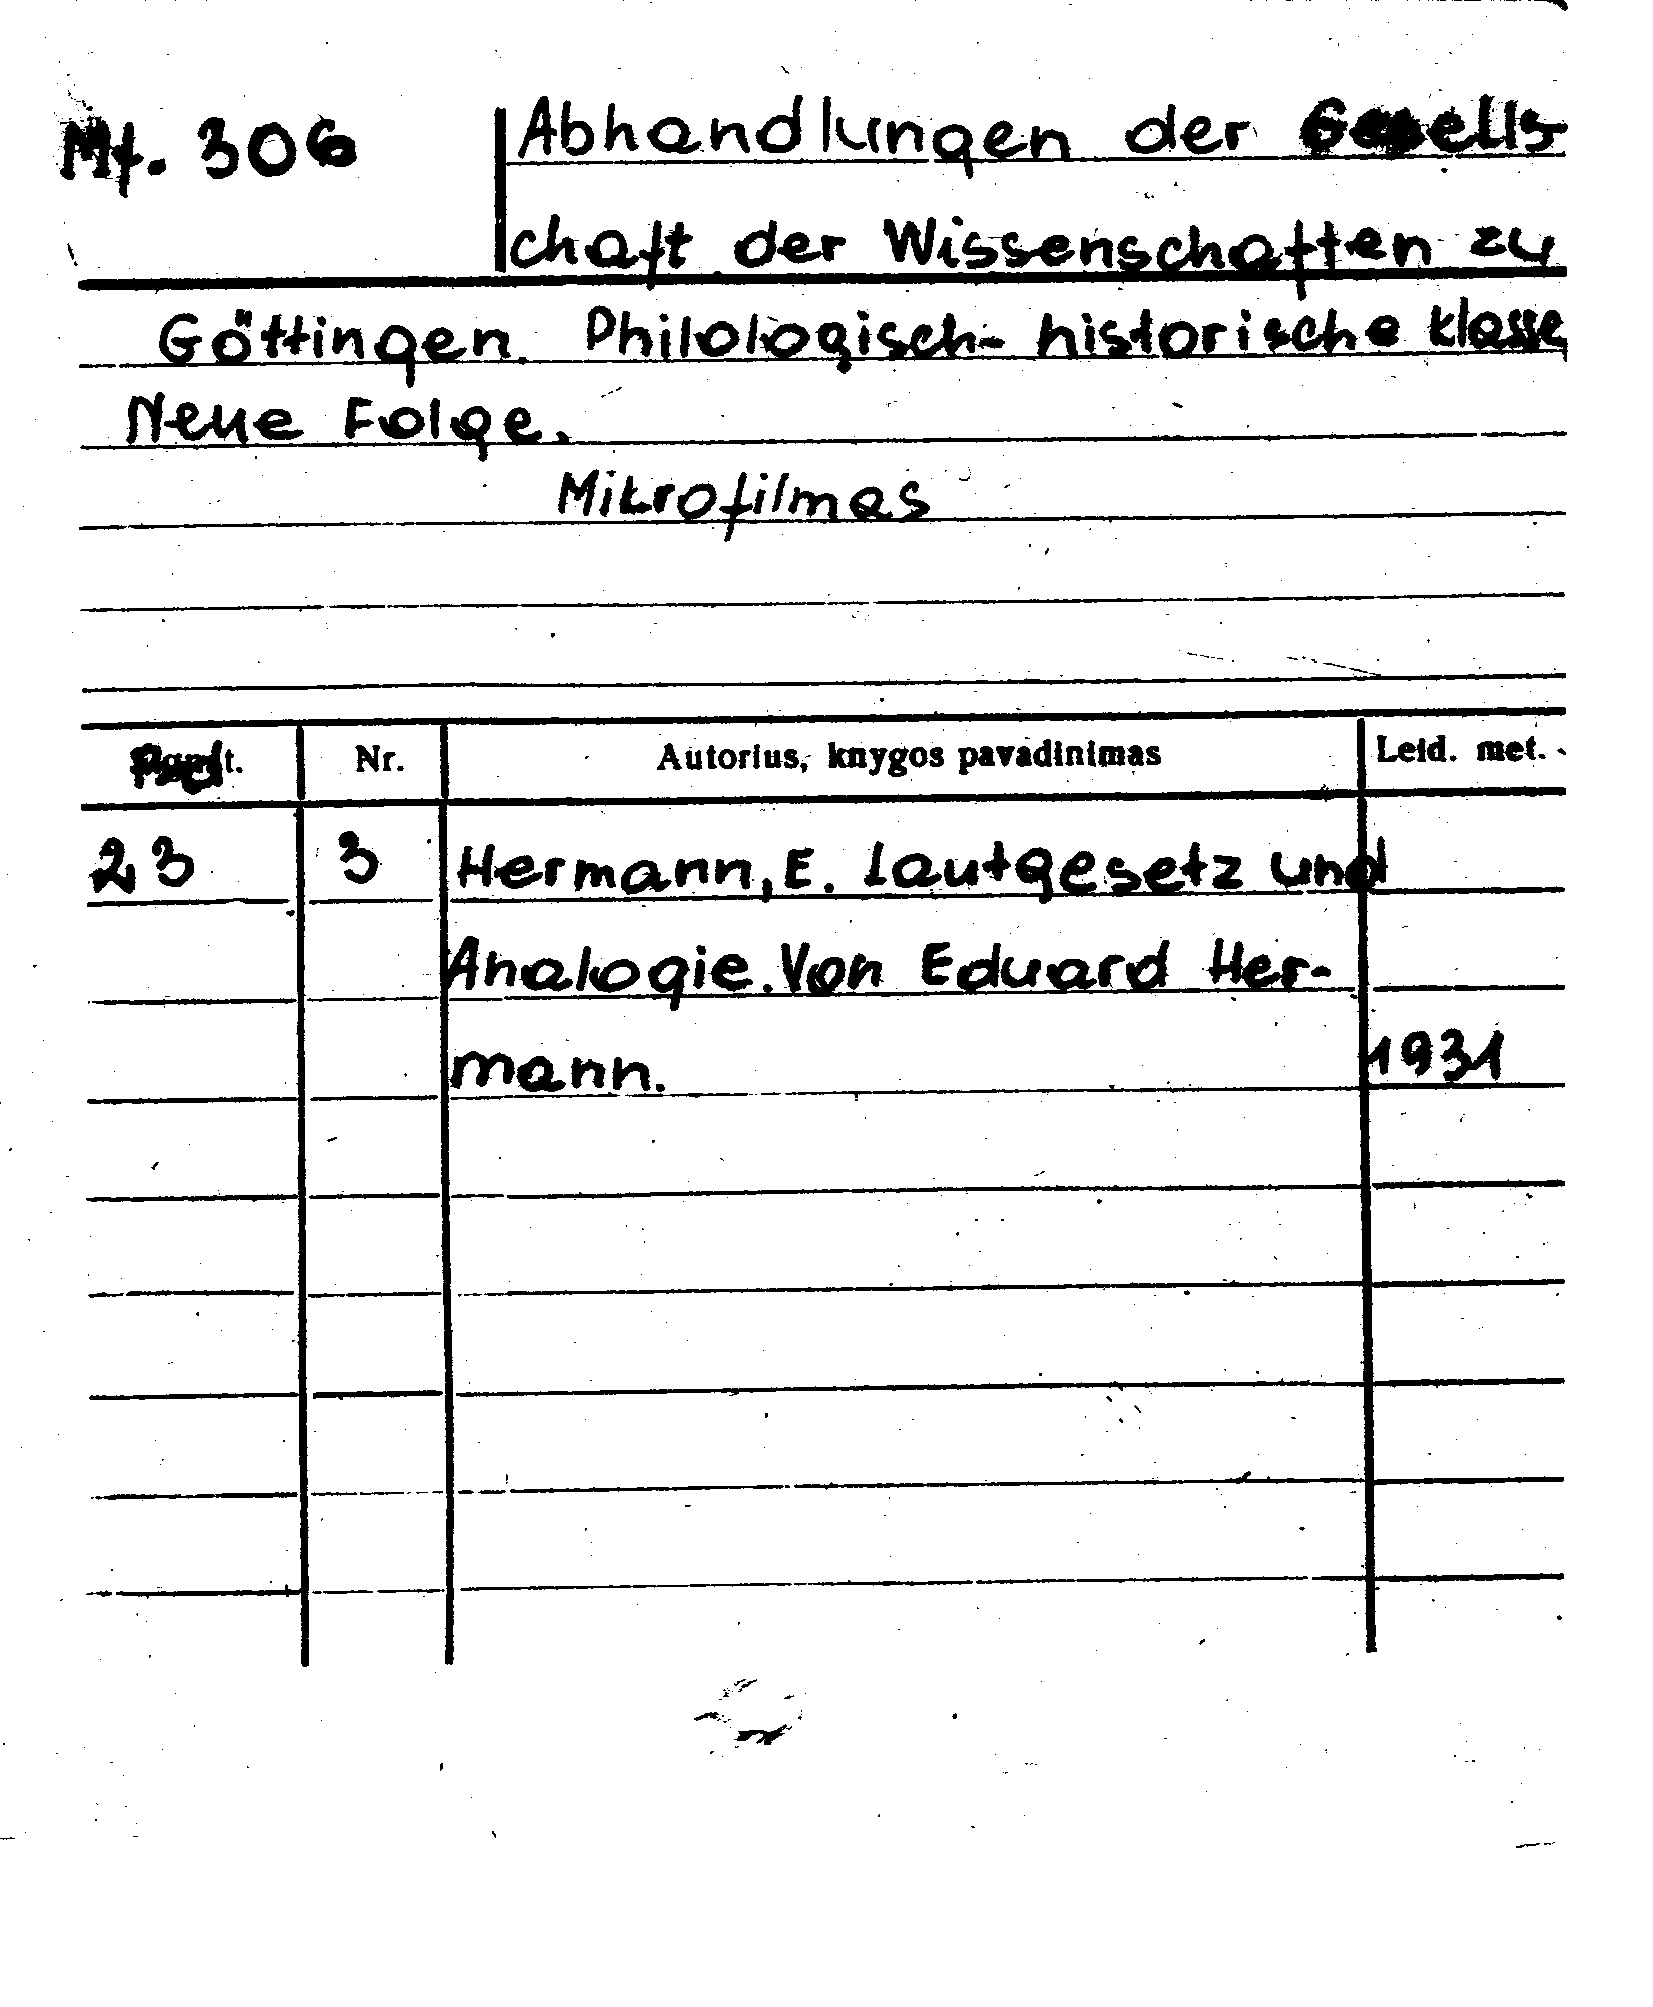 Mf. 306
Abhandlungen der Gesells-
chaft der Wissenschaften zu
Göttingen. Philologisch-historische Klasse
Neue Folge.
Mikrofilmas
Nr. Autorius, knygos pavadinimas Leid. met.
23 3 Hermann, E. Lautgesetz und
Analogie. Von Eduard Her-
mann. 1931